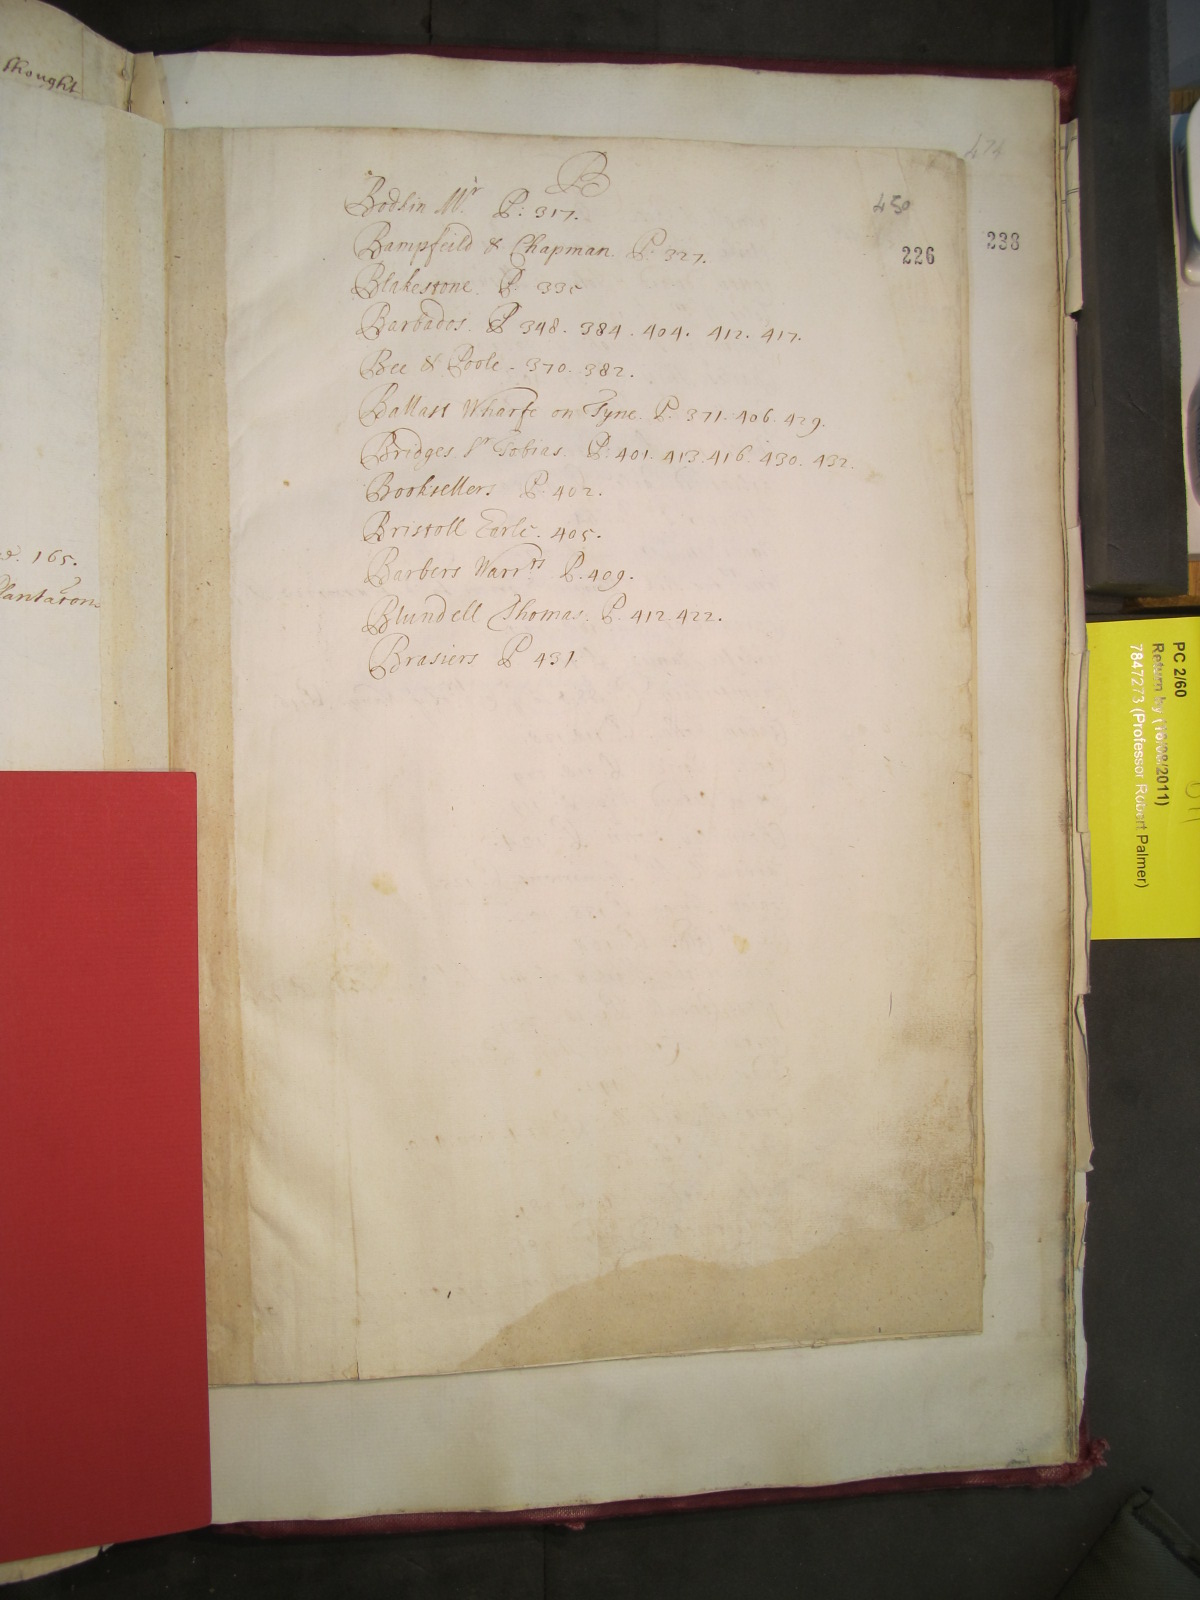 thought
474
B
450
Bodlin Mr P: 317.
226
238
Bampfeild & Chapman. P. 327.
Blakestone. P. 335
Barbados. P 348. 384. 404. 412. 417.
Bee & Poole - 370. 382.
Ballast Wharfe on Tyne. P. 371. 406. 429.
Bridges Sr Tobias. P. 401. 413. 416. 430. 432.
Booksellers P. 402.
Bristoll Earle. 405.
Barbers Warrts P. 409.
Blundell Thomas. P. 412. 422.
Brasiers P 431
165.
lantacon
PC 2/60
Return by (16/08/2011)
7847273 (Professor Robert Palmer)